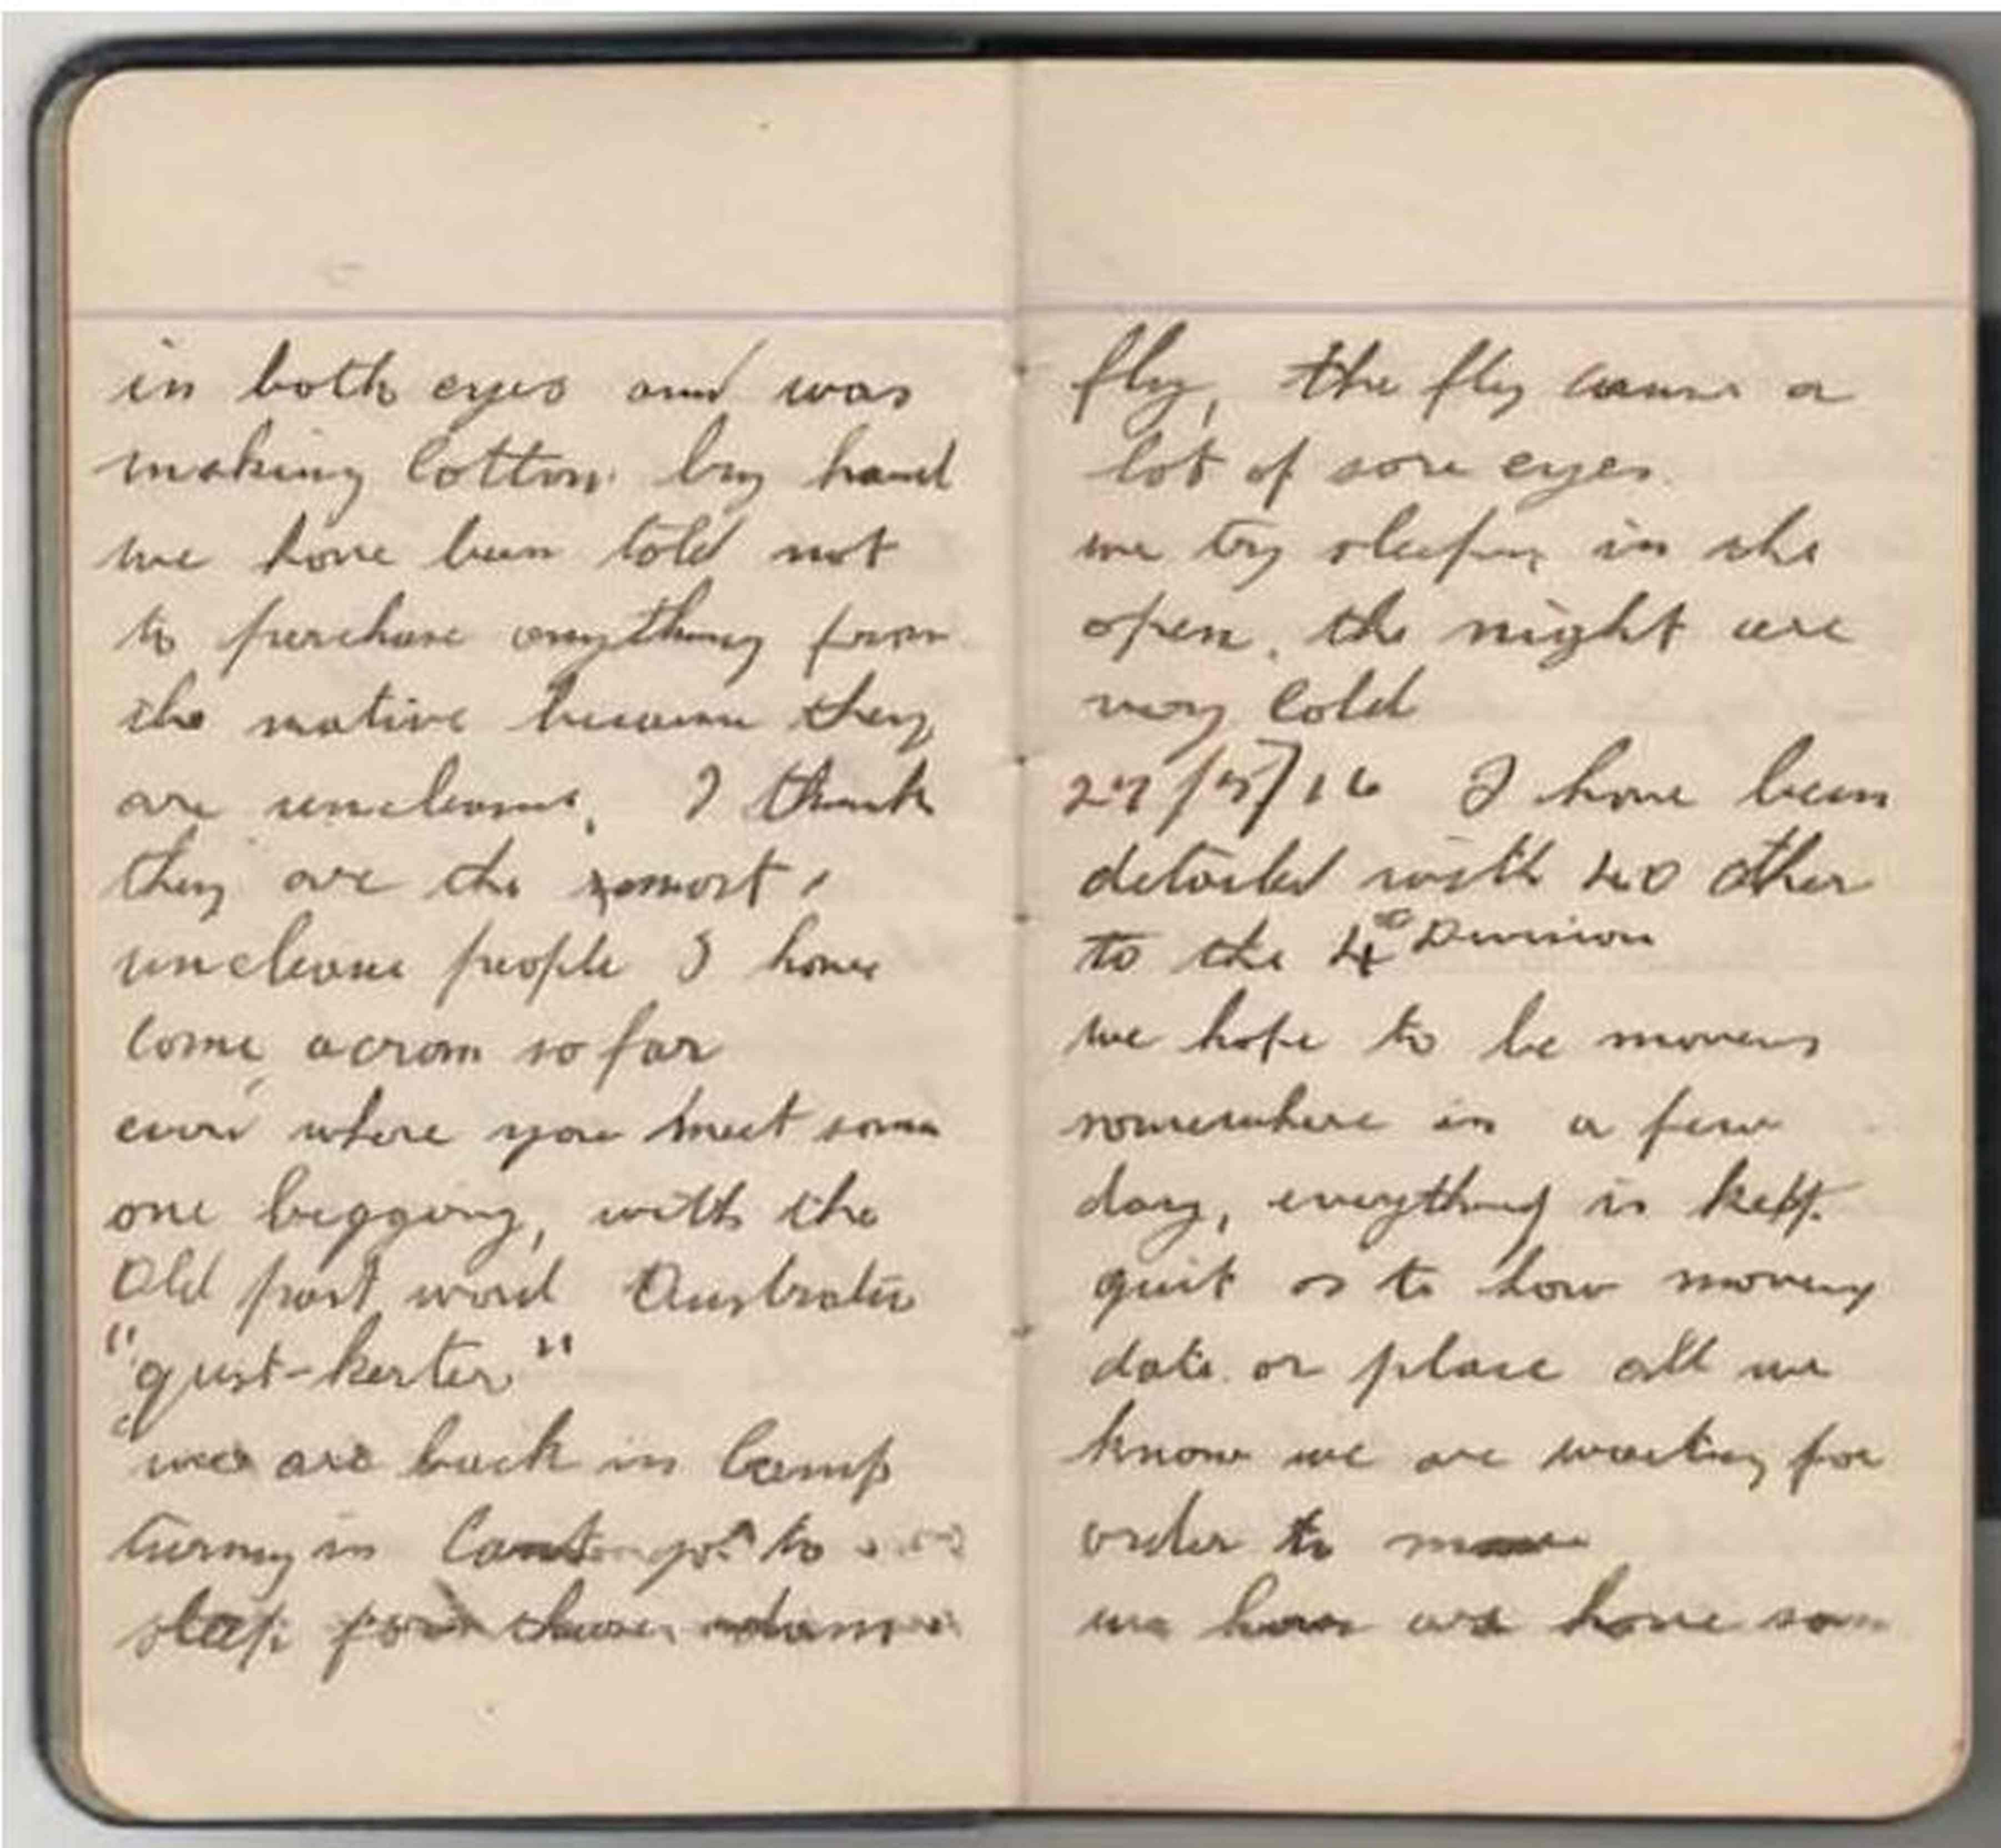 in both eyes and was
making Cotton by hand
we have been told not
to perchase anything from
the native because they
are uncleans, I think
they are the most
uncleane people I have
come across so far
ever where you meet some
one begging, with the
Old past word Australia
"gust-kerter"
we are back in Camp
turning in Cant go to
sleep for
fly, the fly cause a
lot of sore eyes.
we try sleeping in the
open. the night are
very Cold
27/5/16 I have been
detailed with 40 other
to the 4th Division
we hope to be moving
somewhere in a few
day, everything is kept
quit as to how moving
date or place all we
know we are waiting for
order to move
we have som